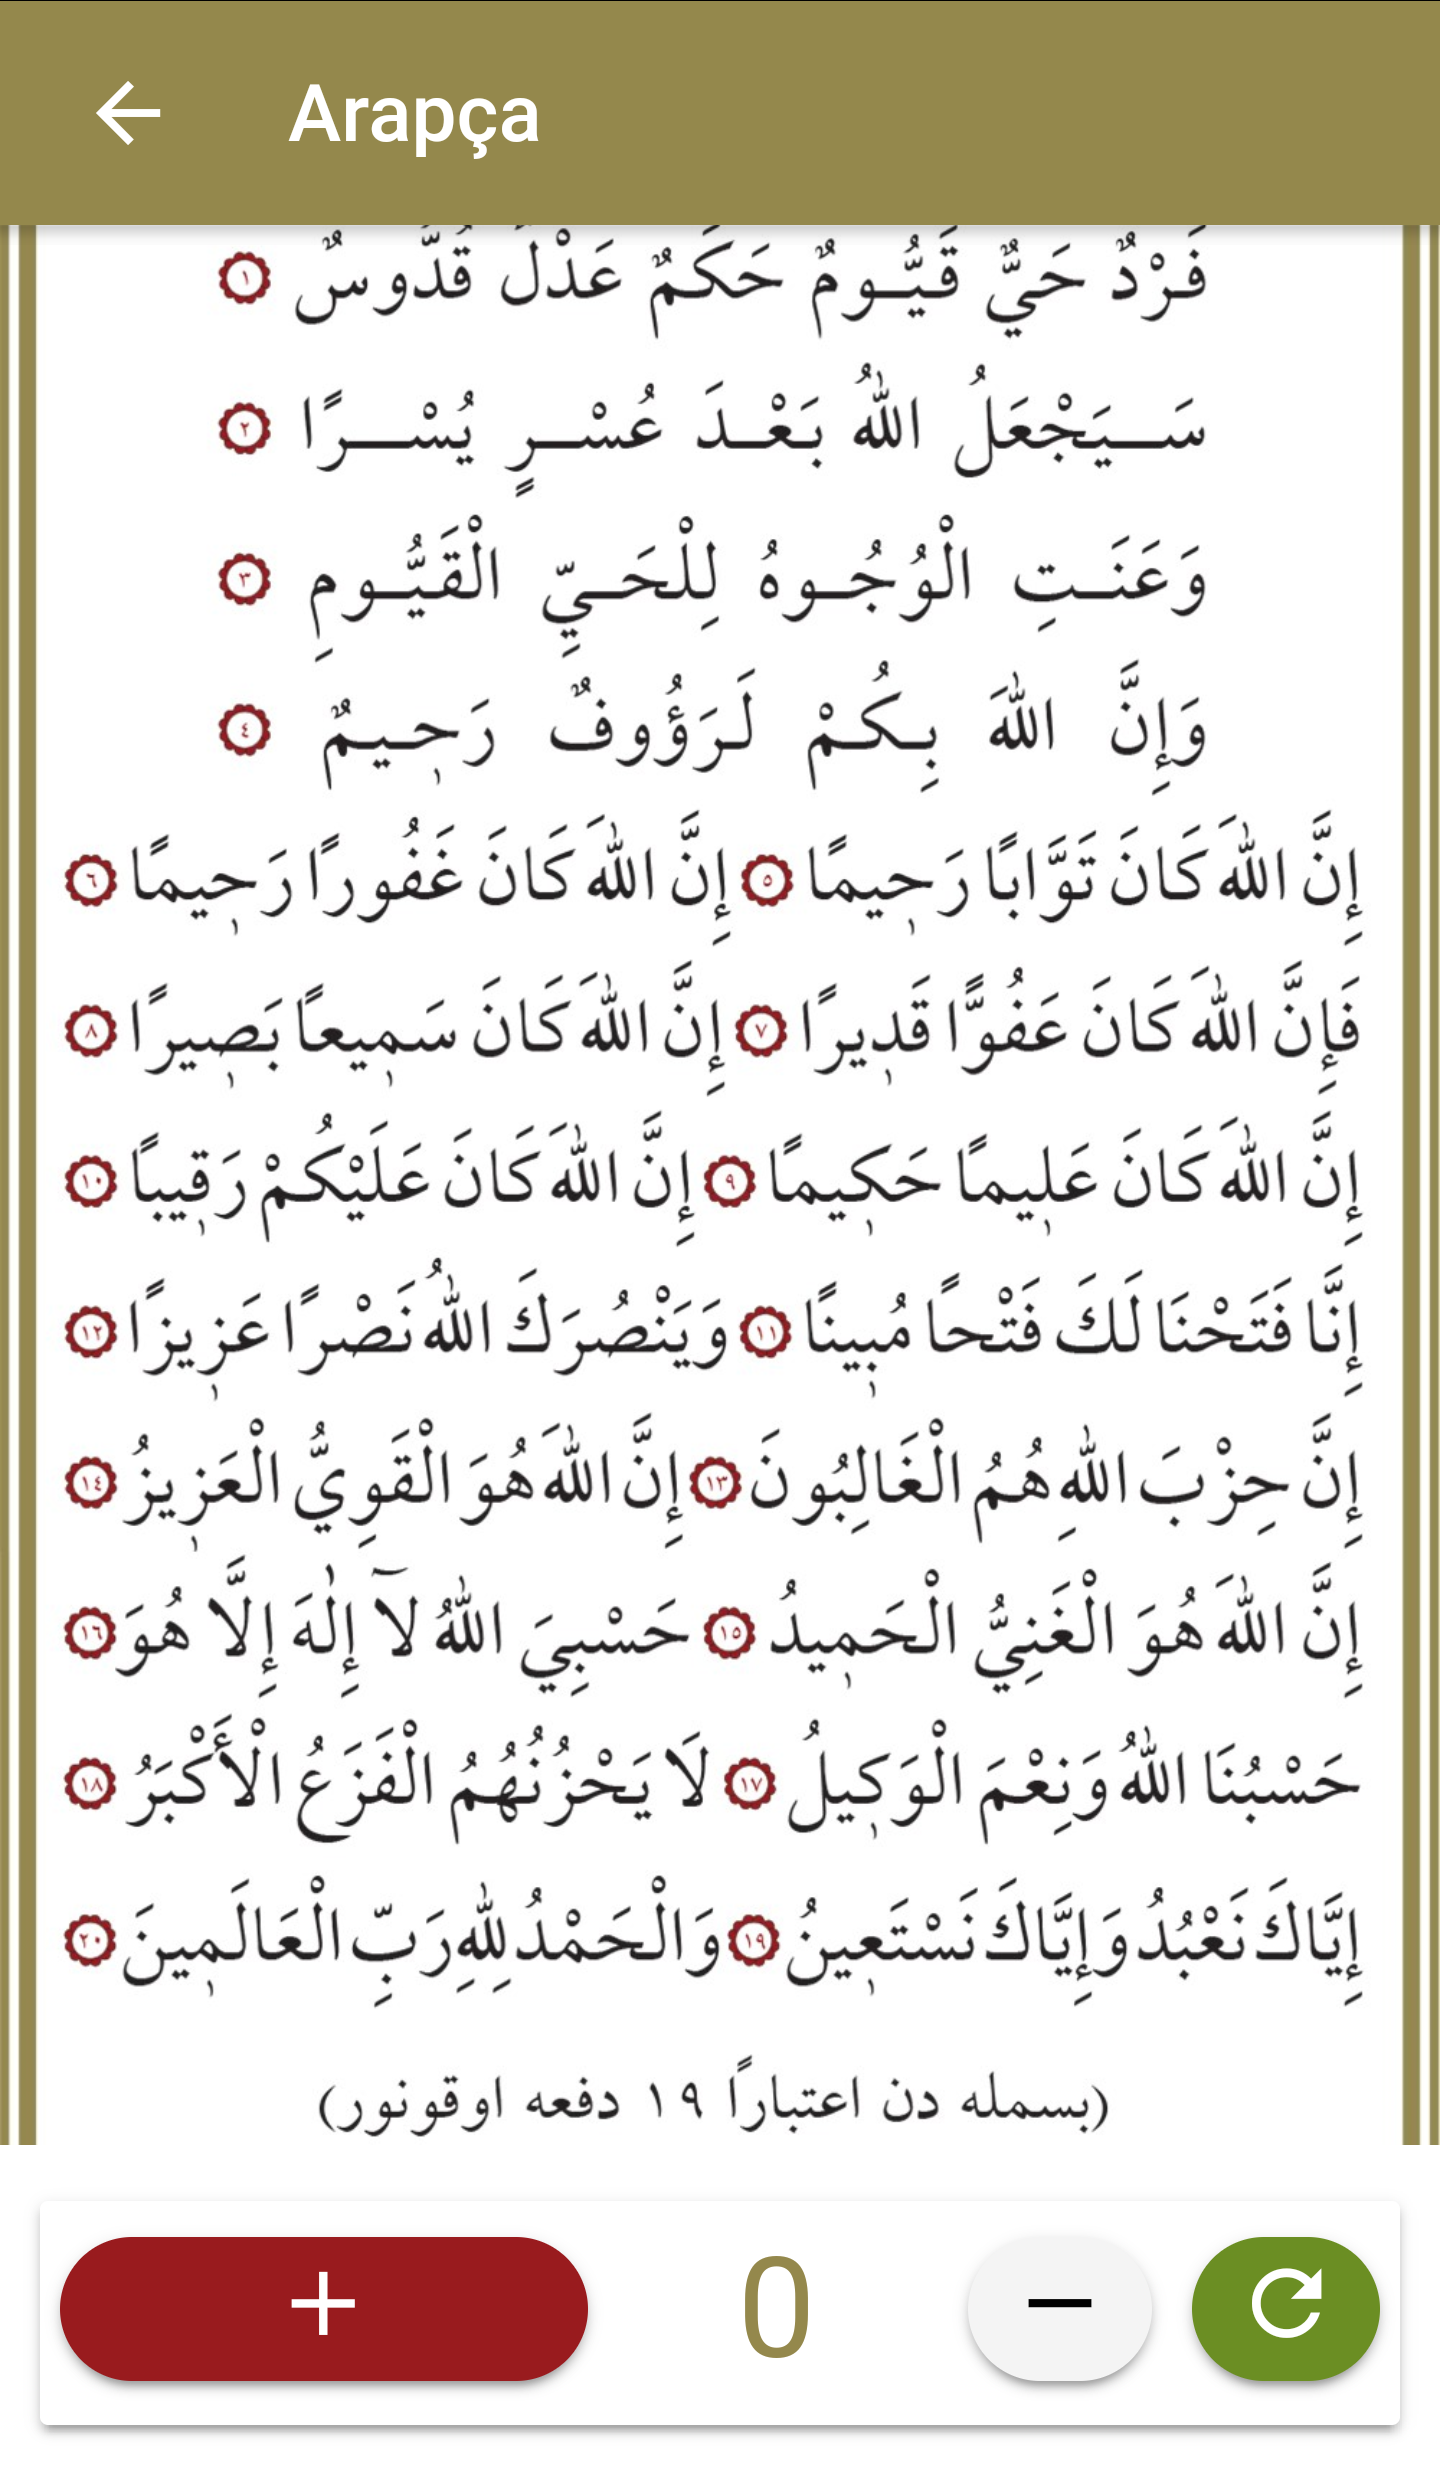 Arapça
فَرْدٌ حَيٌّ قَيُّومٌ حَكَمٌ عَدْلٌ قُدُّوسٌ ١
سَيَجْعَلُ اللّٰهُ بَعْدَ عُسْرٍ يُسْرًا ٢
وَعَنَتِ الْوُجُوهُ لِلْحَيِّ الْقَيُّومِ ٣
وَإِنَّ اللّٰهَ بِكُمْ لَرَؤُوفٌ رَحٖيمٌ ٤
إِنَّ اللّٰهَ كَانَ تَوَّابًا رَحٖيمًا ٥ إِنَّ اللّٰهَ كَانَ غَفُورًا رَحٖيمًا ٦
فَإِنَّ اللّٰهَ كَانَ عَفُوًّا قَدٖيرًا ٧ إِنَّ اللّٰهَ كَانَ سَمٖيعًا بَصٖيرًا ٨
إِنَّ اللّٰهَ كَانَ عَلٖيمًا حَكٖيمًا ٩ إِنَّ اللّٰهَ كَانَ عَلَيْكُمْ رَقٖيبًا ١٠
إِنَّا فَتَحْنَا لَكَ فَتْحًا مُبٖينًا ١١ وَيَنْصُرَكَ اللّٰهُ نَصْرًا عَزٖيزًا ١٢
إِنَّ حِزْبَ اللّٰهِ هُمُ الْغَالِبُونَ ١٣ إِنَّ اللّٰهَ هُوَ الْقَوِيُّ الْعَزٖيزُ ١٤
إِنَّ اللّٰهَ هُوَ الْغَنِيُّ الْحَمٖيدُ ١٥ حَسْبِيَ اللّٰهُ لَٓا إِلٰهَ إِلَّا هُوَ ١٦
حَسْبُنَا اللّٰهُ وَنِعْمَ الْوَكٖيلُ ١٧ لَا يَحْزُنُهُمُ الْفَزَعُ الْأَكْبَرُ ١٨
إِيَّاكَ نَعْبُدُ وَإِيَّاكَ نَسْتَعٖينُ ١٩ وَالْحَمْدُ لِلّٰهِ رَبِّ الْعَالَمٖينَ ٢٠
(بسمله دن اعتباراً ١٩ دفعه اوقونور)
0